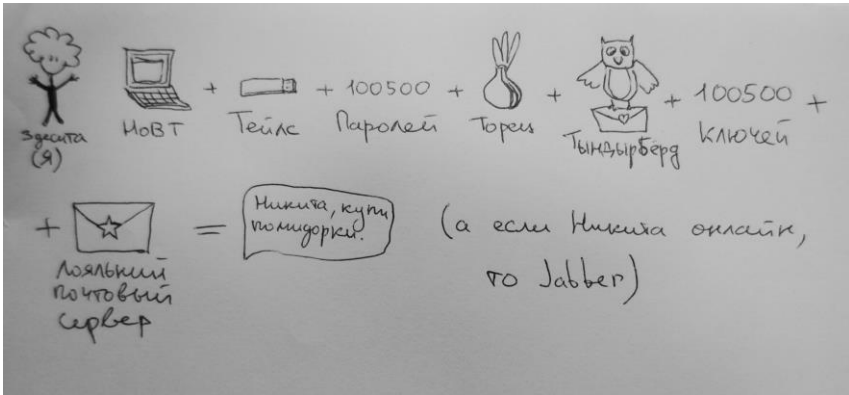 Здесита
(я)
НоВТ
+
Тейлс
+ 100500
Паролей
+
Торец
+
Тындырбёрд
+ 100500 +
Ключей
+
Лояльний
почтовый
сервер
=
Никита, купи
помидорки.
(а если Никита онлайн,
то Jabber)